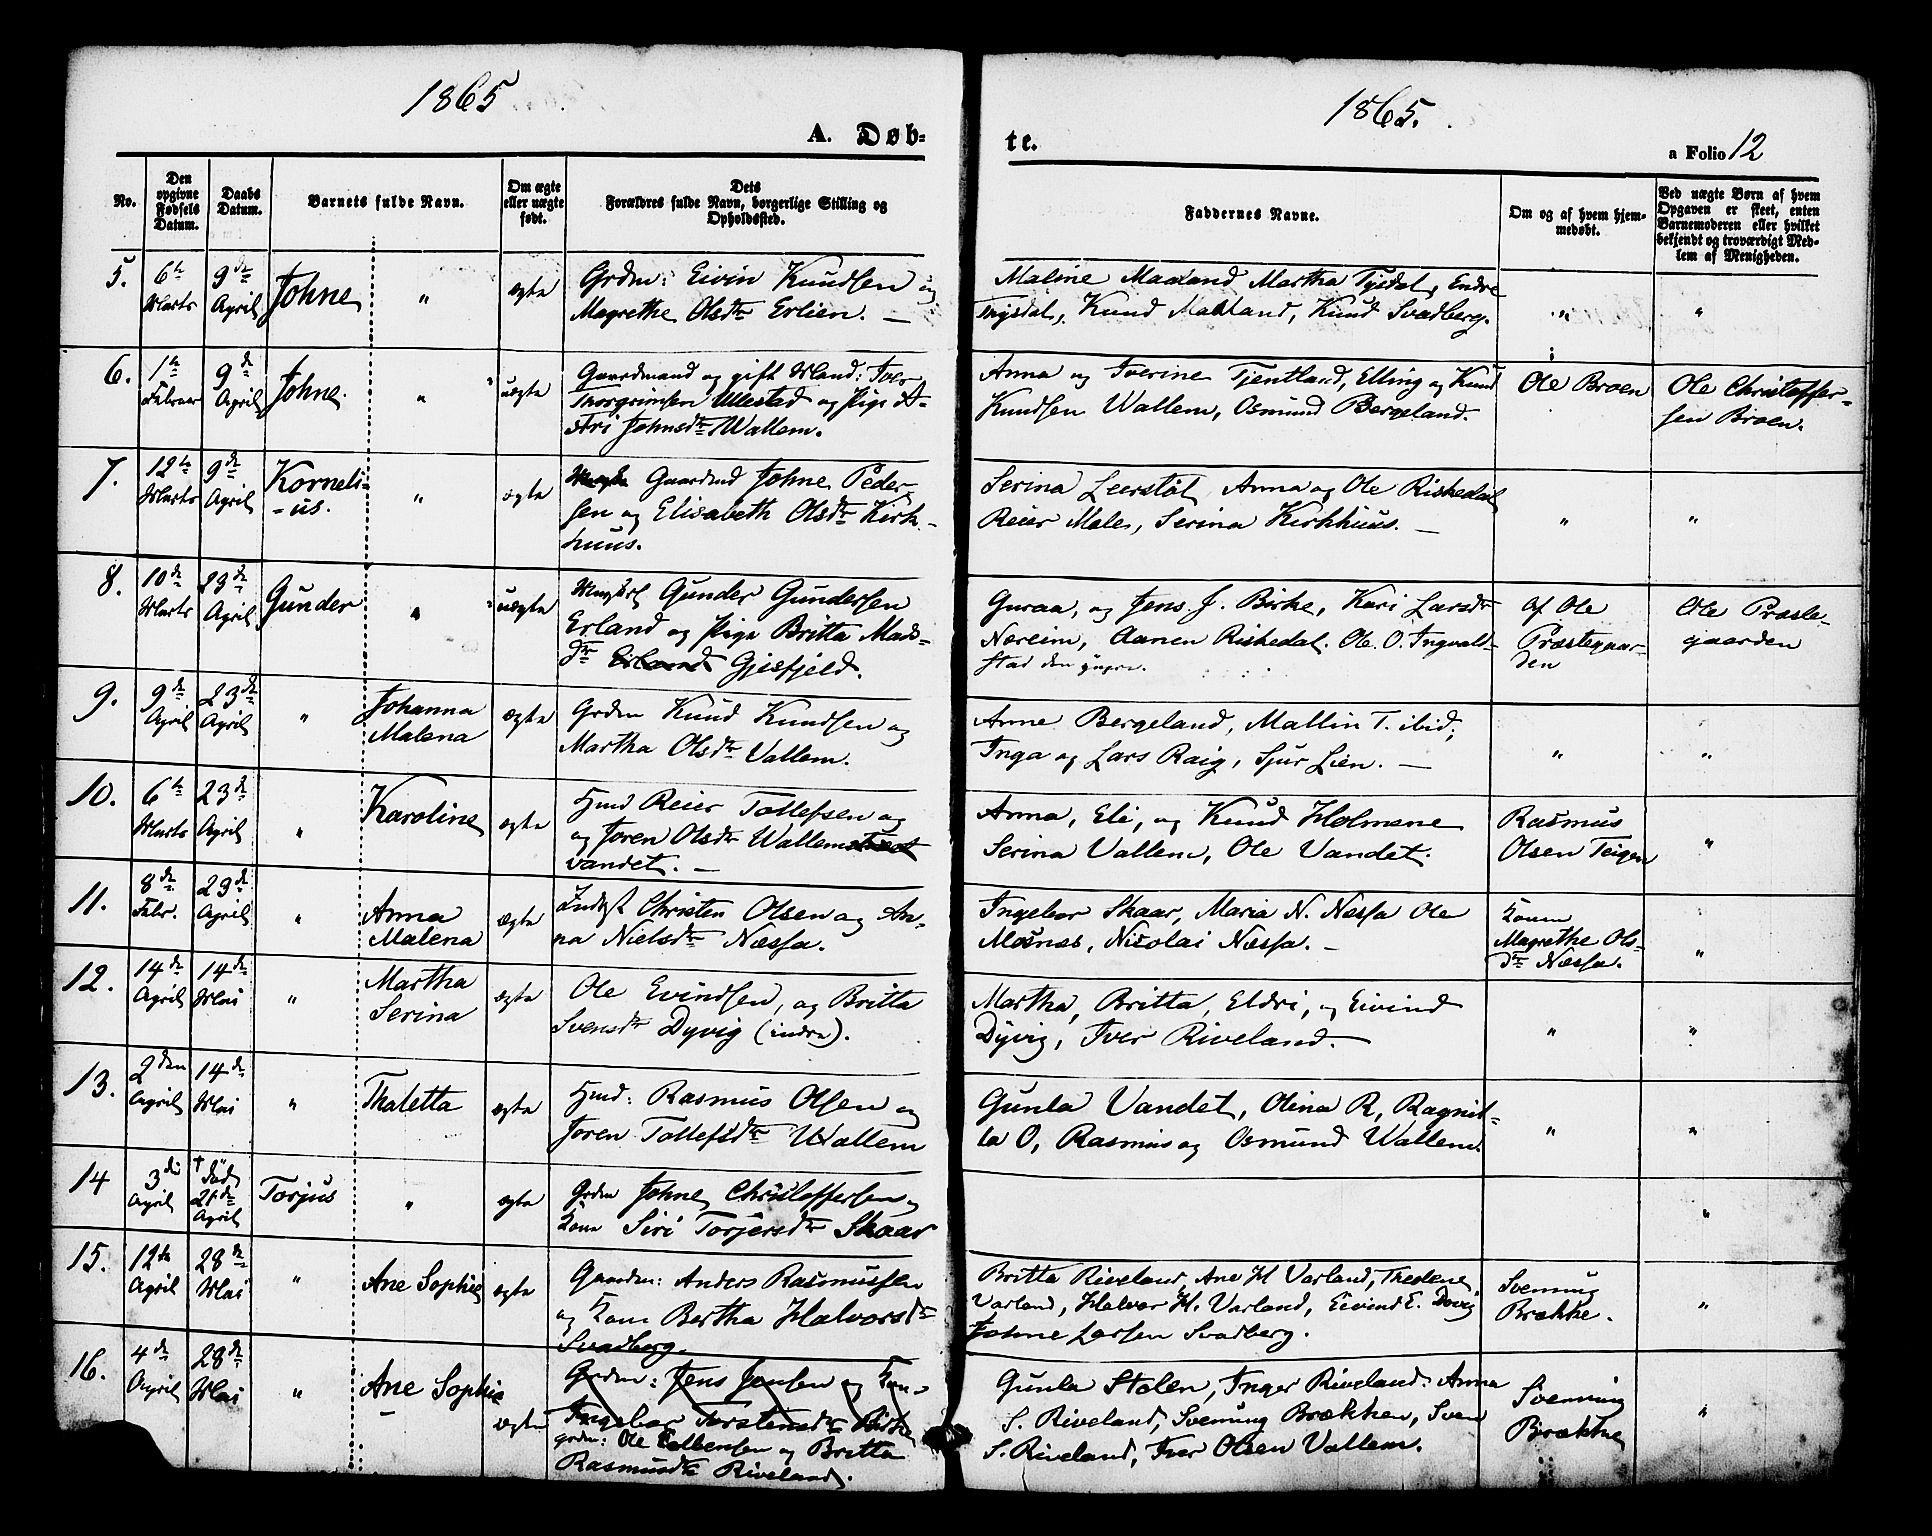 1865
1865.
A. Døb-
te.
a Folio 12
No.
Den opgivne Fødsels Datum.
Daabs Datum.
Barnets fulde Navn.
Om ægte eller uægte født.
Dets Forældres fulde Navn, borgerlige Stilling og Opholdssted.
Faddernes Navne.
Om og af hvem hjemmedøbt.
Ved uægte Børn af hvem Opgaven er skeet, enten Barnemoderen eller hvilket bekjendt og troværdigt Medlem af Menigheden.
5. 6te Marts 9de April Johne " ægte
Grdm: Eivin Knudsen og
Magrethe Olsdtr Erlien. —
Maline Maaland Martha Tysdal, Endre
Tysdal, Knud Maaland, Knud Svadberg.
" "
6. 1te Februar 9de April Johne. " uægte
Gaardmand og gift Mand: Iver
Thorgrimsen Ullestad og Pige A-
stri Johnsdtr Wallem.
Anna og Iverine Tjentland, Elling og Knud
Knudsen Wallem, Osmund Bergeland.
Ole Broen
Ole Christoffer-
sen Broen.
7. 12te Marts 9de April Korneli-
-us. " ægte
Gaardmd Johne Peder-
sen og Elisabeth Olsdtr Kirk-
huus.
Serina Leerstøl, Anna og Ole Riskedal
Reier Male, Serina Kirkhuus. —
" "
8. 10de Marts 23de April Gunder " uægte
Ungkrl Gunder Gundersen
Erland og Pige Britta Mads-
dtr Erland Gjesfjeld.
Guraa, og Jens J. Birke, Kari Larsdtr
Næreim, Aanen Riskedal. Ole O. Ingvald-
stad den yngre.
Af Ole
Præstegaar-
den
Ole Præste-
gaarden
9. 9de April 23de April " Johanna
Malena ægte
Grdm Knud Knudsen og
Martha Olsdtr Vallem.
Anne Bergeland, Mallin T. ibid;
Inga og Lars Raig, Sjur Lien. —
" "
10. 6te Marts 23de April " Karoline ægte
Hmd Reier Tollefsen og
og Joren Olsdtr Wallem
vandet. —
Anna, Eli, og Knud Holmene
Serina Vallem, Ole Vandet.
Rasmus
Olsen Teigen
"
11. 8de Febr. 23de April " Anna
Malena ægte
Indst Christen Olsen og An-
na Nielsdtr Næssa.
Ingebor Skaar, Maria N. Næssa Ole
Mosnæs, Nicolai Næssa. —
Konen
Magrethe Ols-
dtr Næssa.
"
12. 14de April 14de Mai " Martha
Serina ægte
Ole Evindsen, og Britta
Svensdtr Dyvig (indre).
Martha, Britta, Eldri, og Eivind
Dyvig, Iver Riveland. —
" "
13. 2den April 14de Mai " Thaletta ægte
Hmd: Rasmus Olsen og
Joren Tollefsdtr Wallem
Gunla Vandet, Olina R, Ragnil-
la O, Rasmus og Osmund Wallem.
" "
14 3di April † død 21de April Torjus " ægte
Grdm Johne Christoffersen og
Kone Siri Torjersdtr Skaar
"
15. 12te April 28de Mai " Ane Sophie ægte
Gaardm: Anders Rasmussen
og Kone Bertha Halvorsdtr
Svadberg.
Britta Riveland, Ane H Varland, Thedene
Varland, Halvor H. Varland, Eivind E. Dyvig
Johne Larsen Svadberg.
Svenning
Brække.
"
16. 4de April 28de Mai " Ane Sophie ægte
Grdm: Jens Jensen og Kon-
Ingebor Torstensdtr Birke
grdm: Ole Colbensen og Britta
Rasmusdtr Riveland.
Gunla Stolen, Inger Riveland: Anna
S. Riveland, Svenning Brækken, Sven
S. Riveland, Iver Olsen Vallem.
Svenning
Brække
"